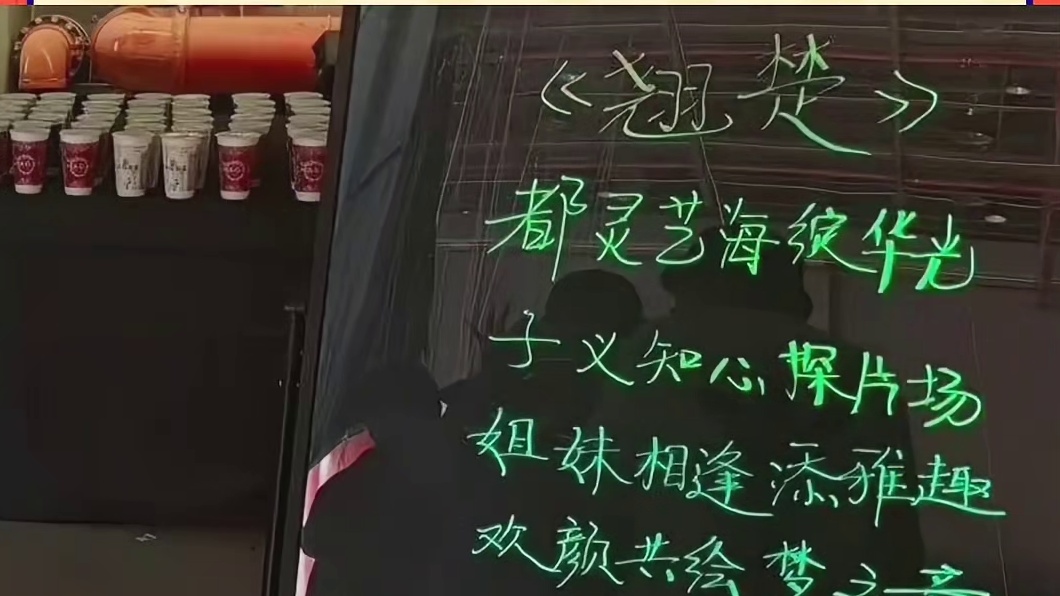 《翘楚》
都灵艺海绽华光
子义知心探片场
姐妹相逢添雅趣
欢颜共绘梦之